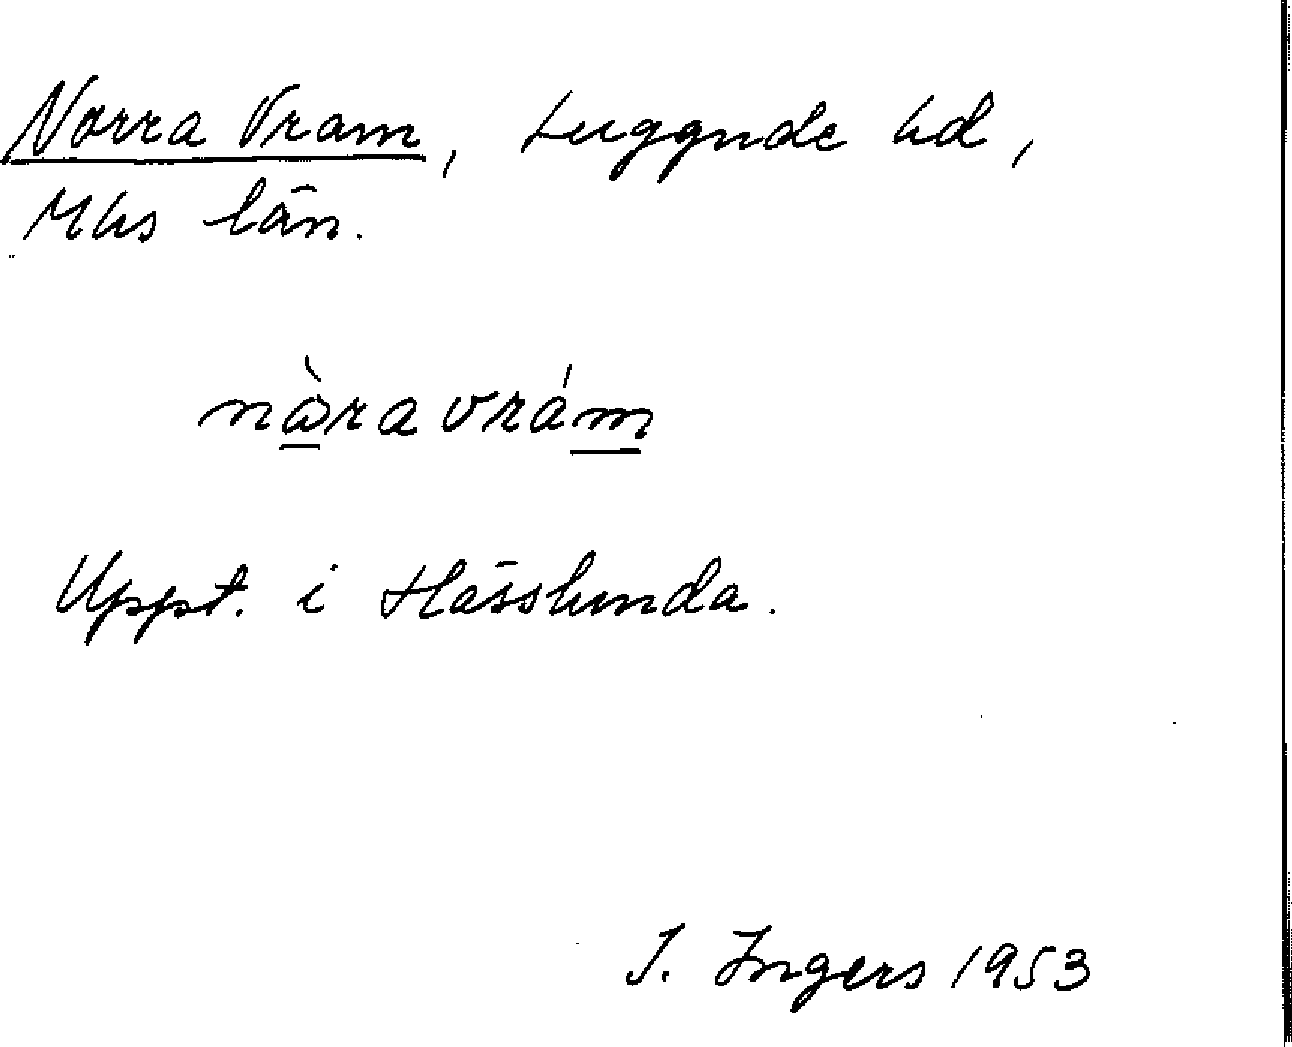 Norra Vram, Luggude hd,
Mhs län.
nàravrám
Uppt. i Hässlunda.
I. Ingers 1953